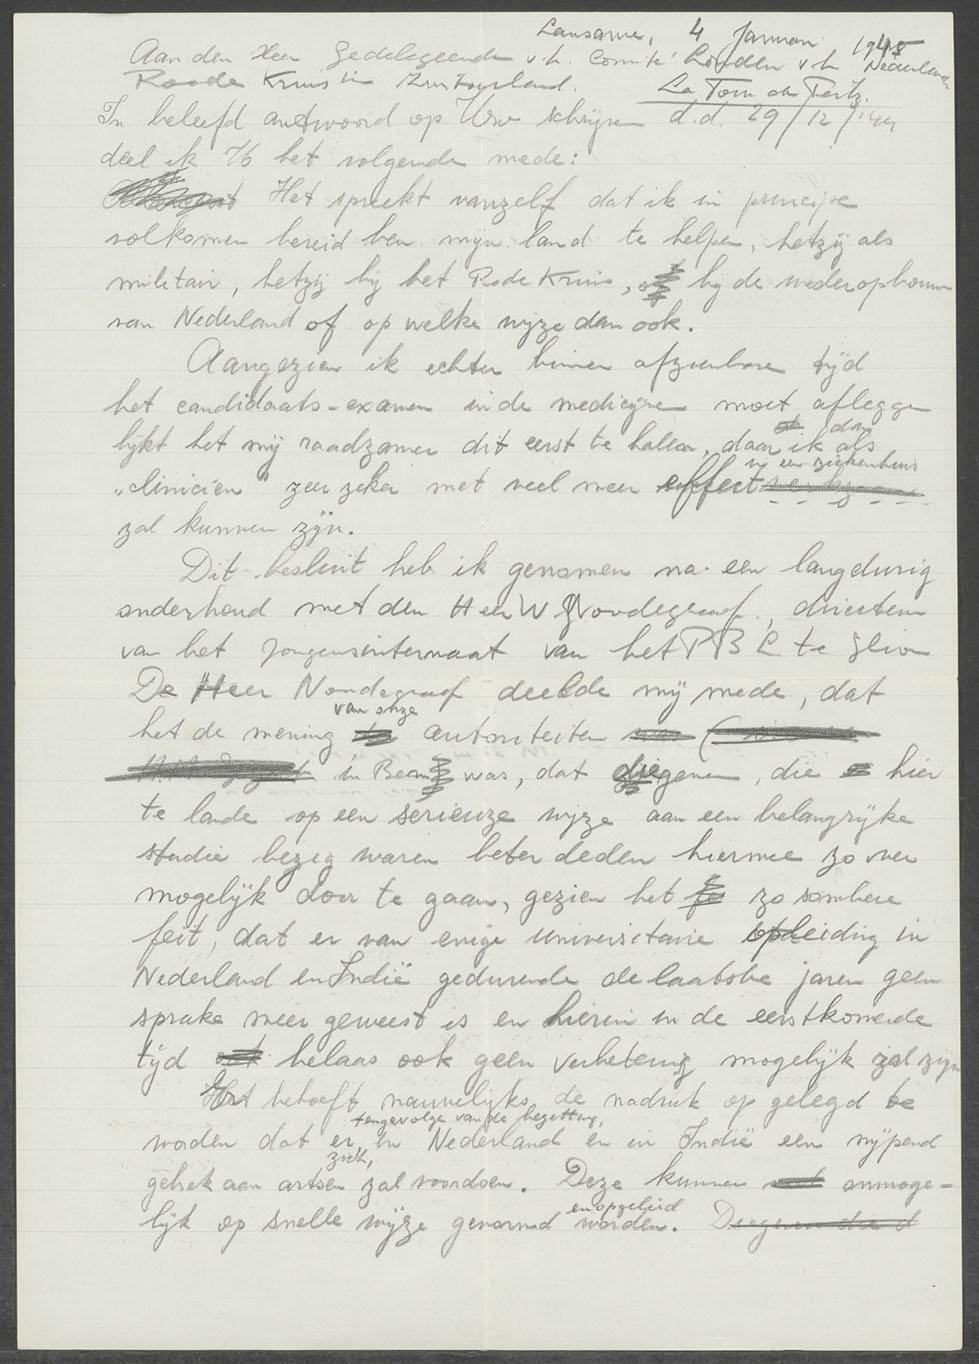 Lausanne, 4 Januari 1945
Aan den Heer Gedelegeerde v.h. Comité Londen v.h. Nederlands
Roode Kruis in Zwitserland. La Tour de Peilz.
In beleefd antwoord op Uw schrijven d.d. 29/12/'44
deel ik U het volgende mede:
Het spreekt vanzelf dat ik in principe
volkomen bereid ben mijn land te helpen, hetzij als
militair, hetzij bij het Rode Kruis, of bij de wederopbouw
van Nederland of op welke wijze dan ook.
Aangezien ik echter binnen afzienbare tijd
het candidaats-examen in de medicijnen moet afleggen
dan
lijkt het mij raadzamer dit eerst te halen, daar ik als
in een ziekenhuis
"clinicien" zeer zeker met veel meer effect werkzaam
zal kunnen zijn.
Dit besluit heb ik genomen na een langdurig
onderhoud met den Heer W Nondegraaf, directeur
van het Jongensinternaat van het P B L te Glion
De Heer Nondegraaf deelde mij mede, dat
van onze
het de mening autoriteiten
in Bern was, dat diegenen, die hier
te lande op een serieuze wijze aan een belangrijke
studie bezig waren beter deden hiermee zo ver
mogelijk door te gaan, gezien het zo sombere
feit, dat er van enige universitaire opleiding in
Nederland en Indië gedurende de laatste jaren geen
sprake meer geweest is en hierin in de eerstkomende
tijd helaas ook geen verbetering mogelijk zal zijn
Het behoeft nauwelijks de nadruk op gelegd te
tengevolge van de bezetting,
worden dat er in Nederland en in Indië een nijpend
zich,
gebrek aan artsen zal voordoen. Deze kunnen onmoge-
en opgeleid
lijk op snelle wijze gevormd worden. Diegenen die d